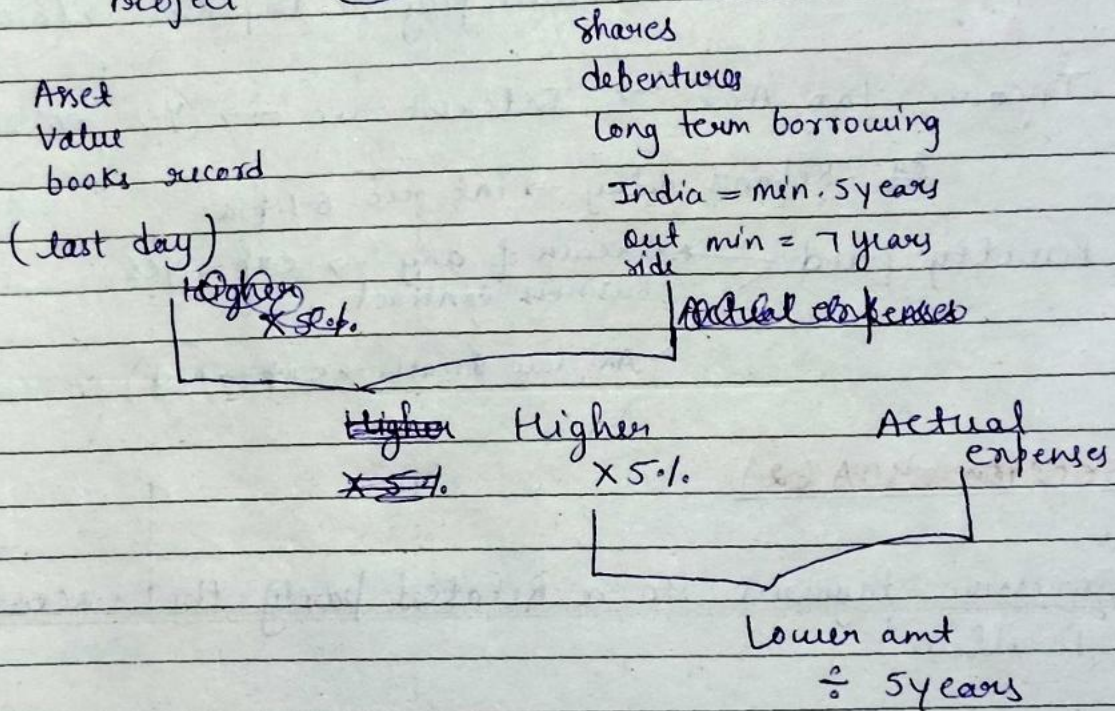 shares
Asset
Value
books record
(last day)
debentures
long term borrowing
India = min. 5 years
out side min = 7 years
Higher
X 50%
Actual expenses
Higher
X 5%
Higher
X 5%
Actual
expenses
Lower amt
÷ 5 years